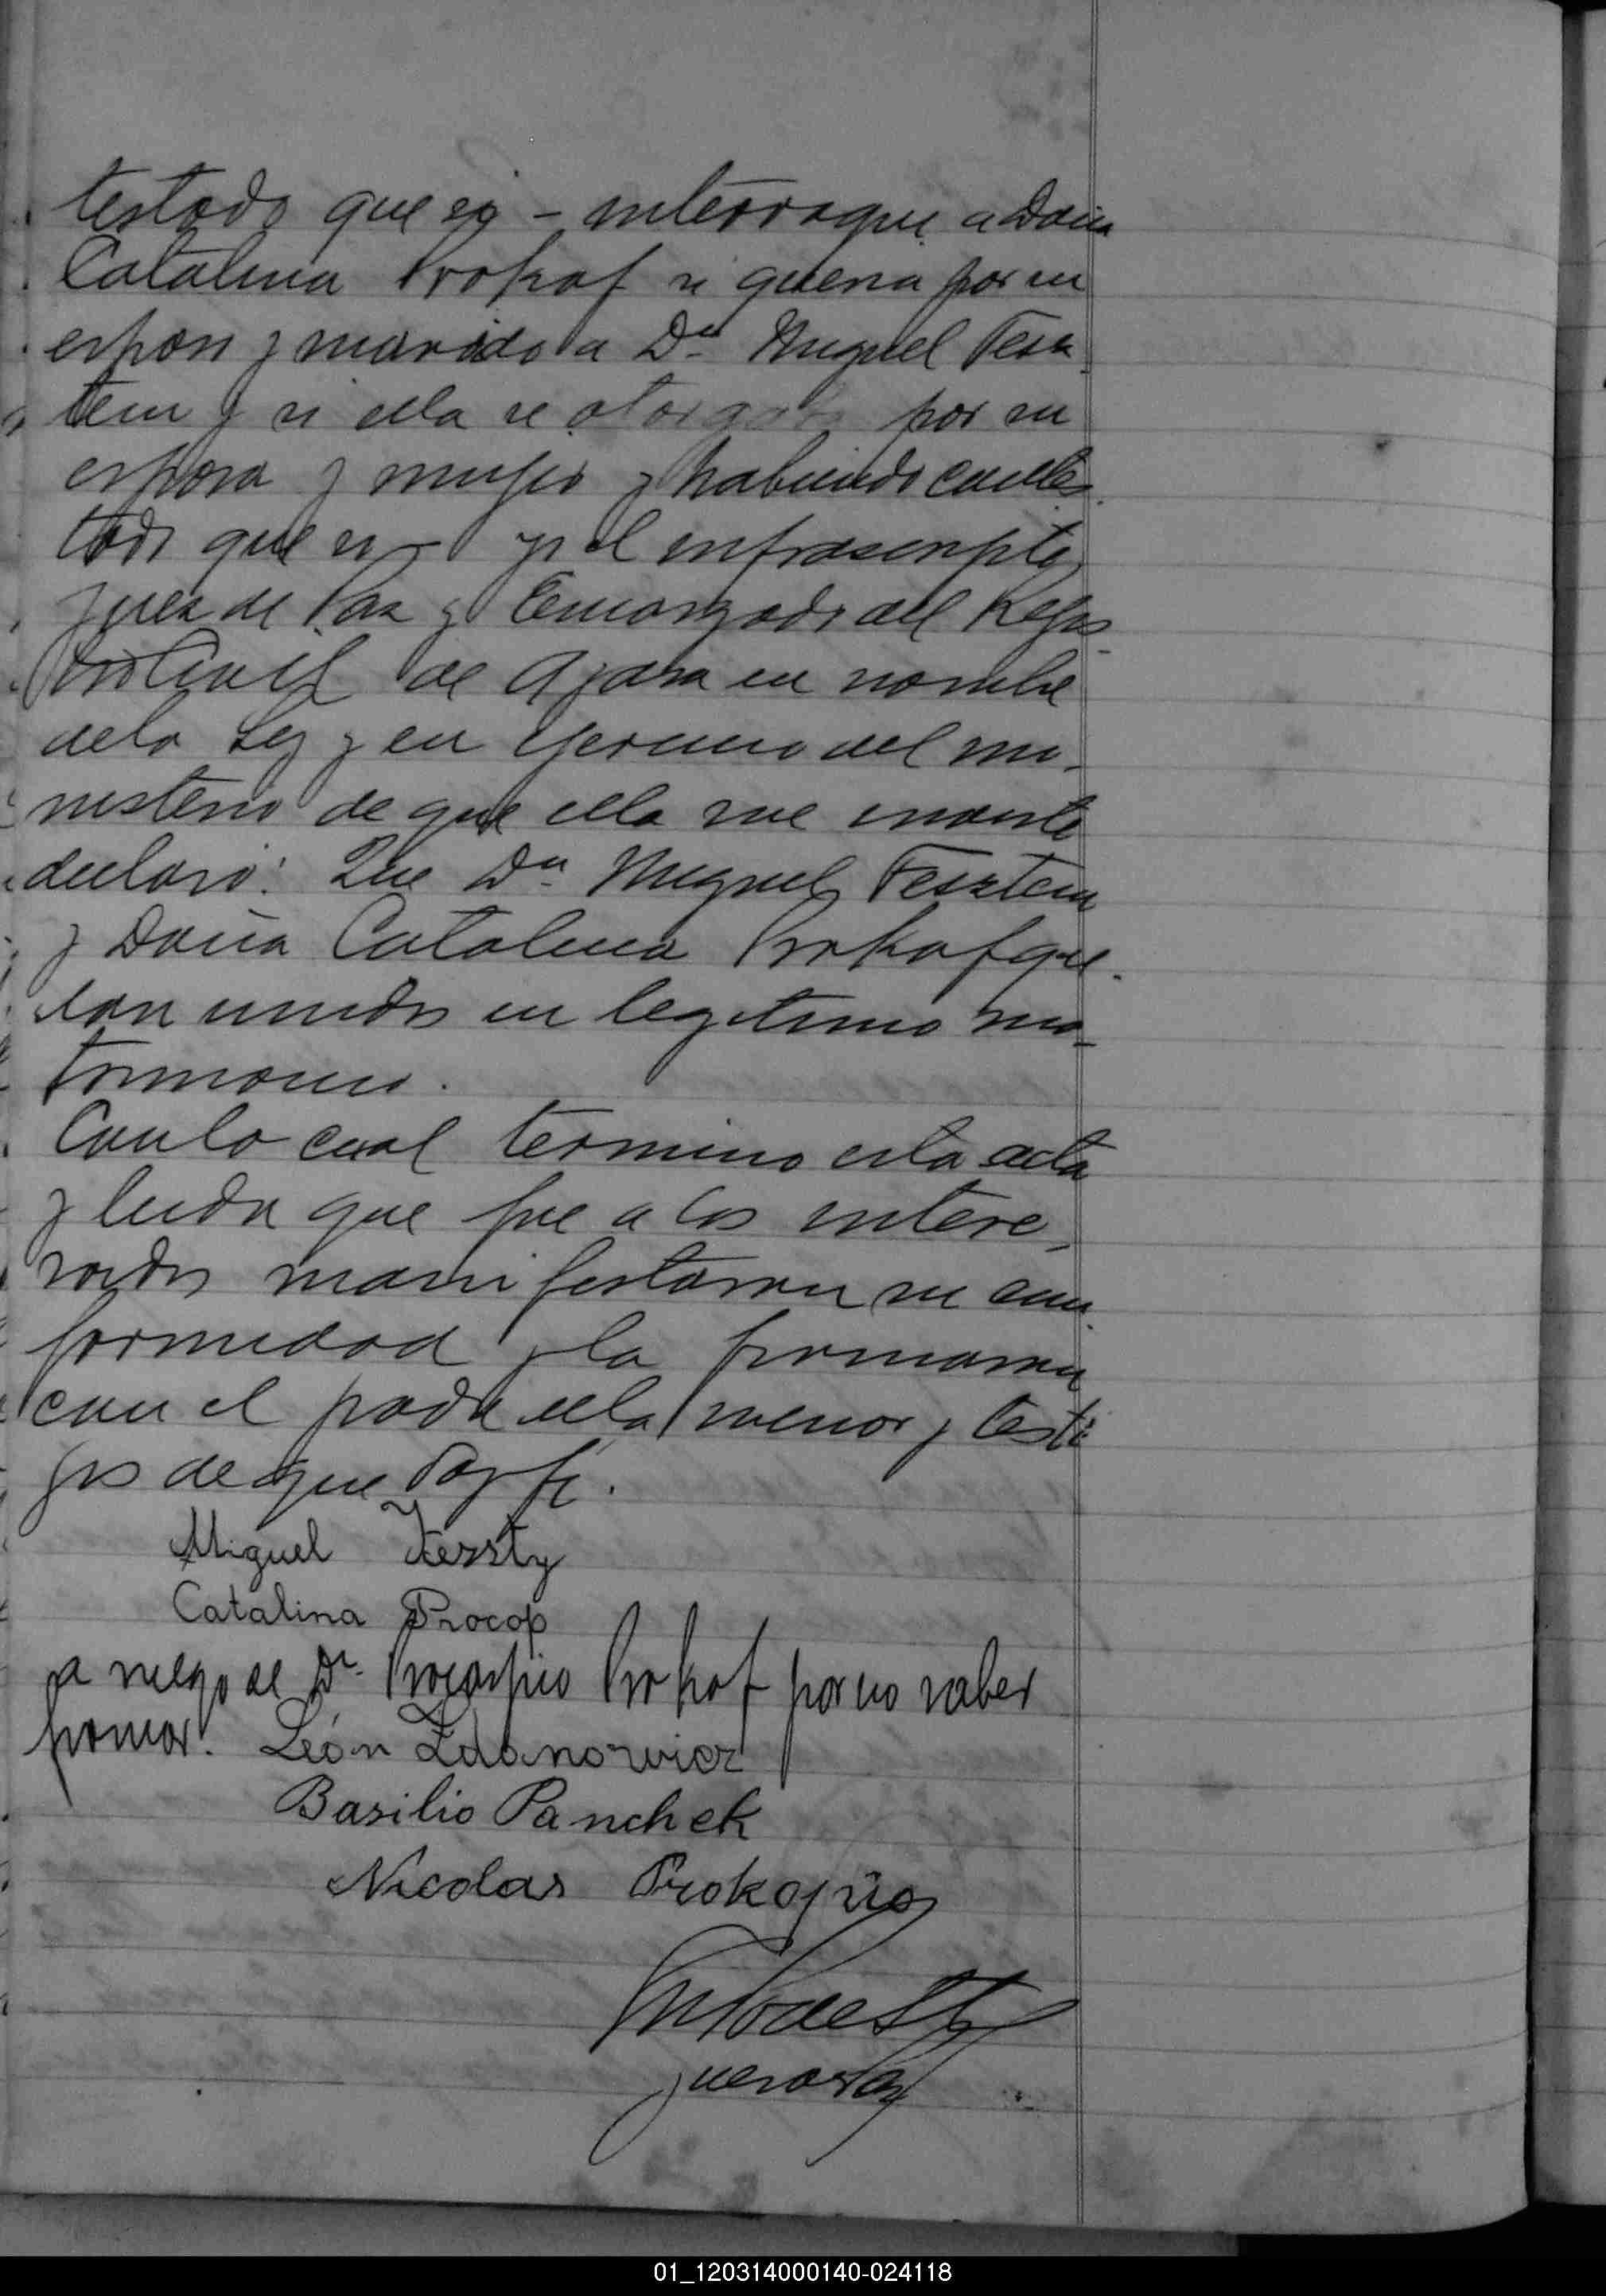 testado que si – interrogue a Doña
Catalina Prokof si queria por su
esposo y marido a Dn Miguel Fesz
tem y si ella se otorgaba por su
esposa y mujer y habiendo contes
tado que si – yo el infrascripto
Juez de Paz y Encargado del Regis
tro Civil de Azara en nombre
de la Ley y en ejercicio del mi-
nisterio de que ella me inviste
declaro: Que Dn Miguel Fesztem
y Doña Catalina Prokof que-
dan unidos en legitimo ma-
trimonio.
Con lo cual termino esta acta
y leida que fue a los intere-
sados manifestaron su con
formidad y la firmaron
con el padre de la menor y testi
gos de que doy fé.
Miguel Fessty
Catalina Procop
a ruego de Dn Procopio Prokof por no saber
firmar. León Zdanowicz
Basilio Panchek
Nicolas Prokopio
Juez de Paz
01_120314000140-024118